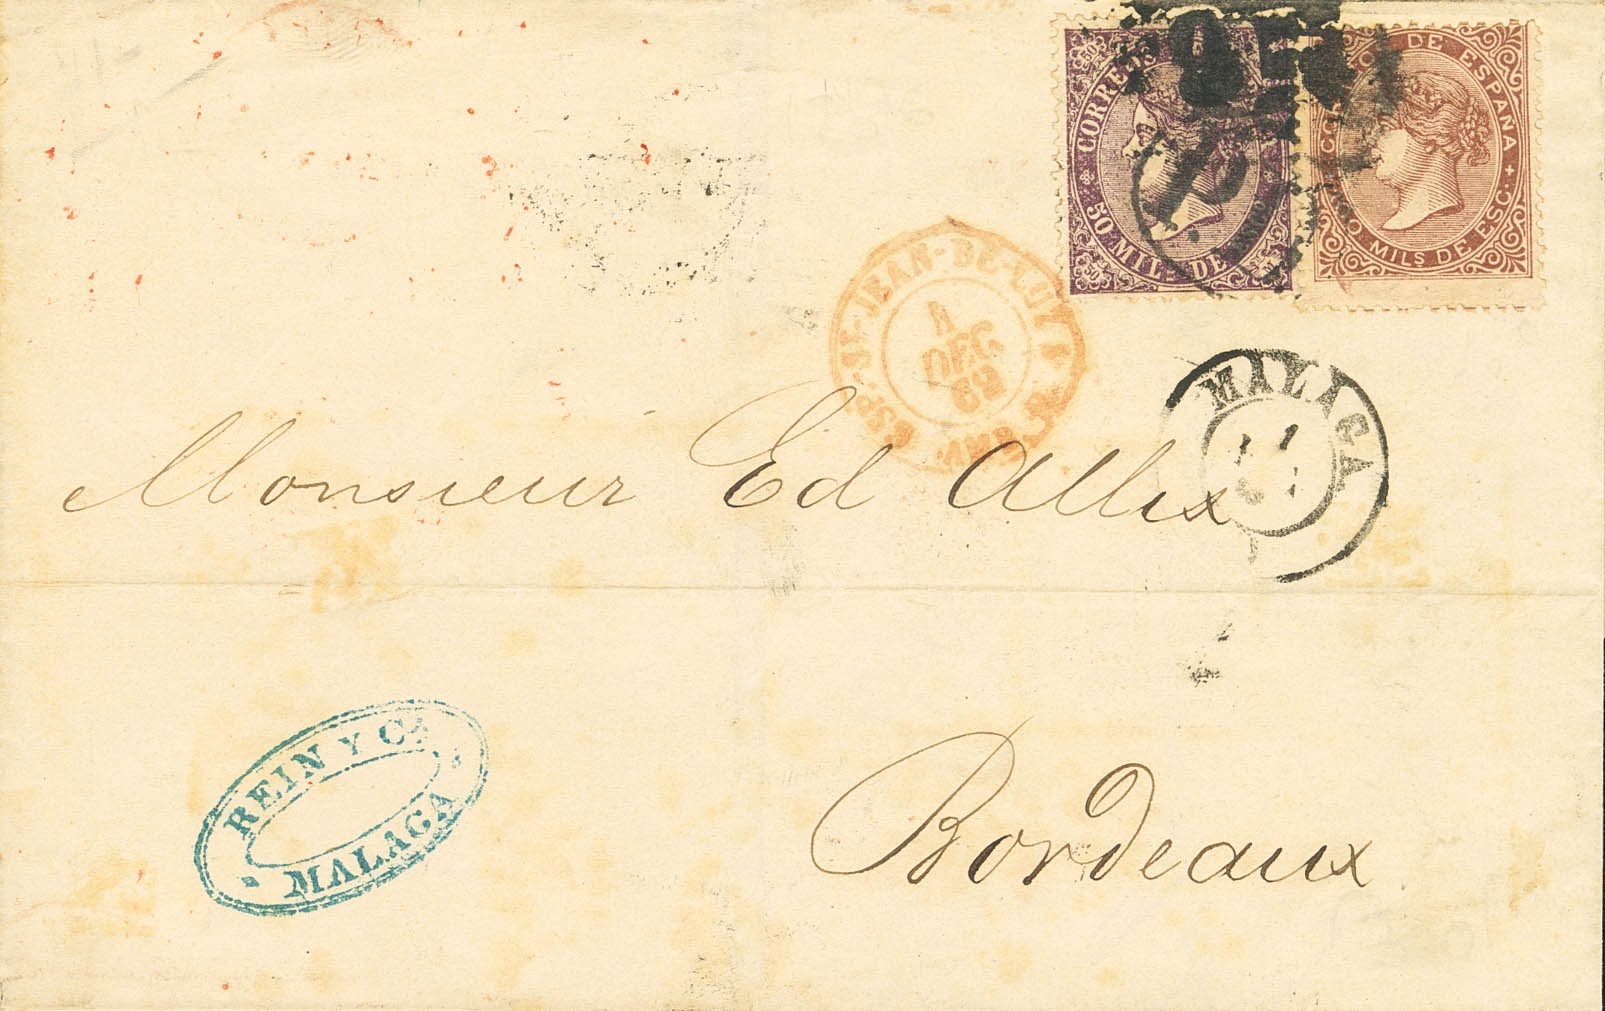 CORREOS
50 MILS DE
DE ESPAÑA
MILS DE ESC.
ESP. ST-JEAN-DE-LUZ
4
DEC.
62
AMB.
MALAGA
Monsieur Ed Allix
REIN Y Cª
MALAGA
Bordeaux